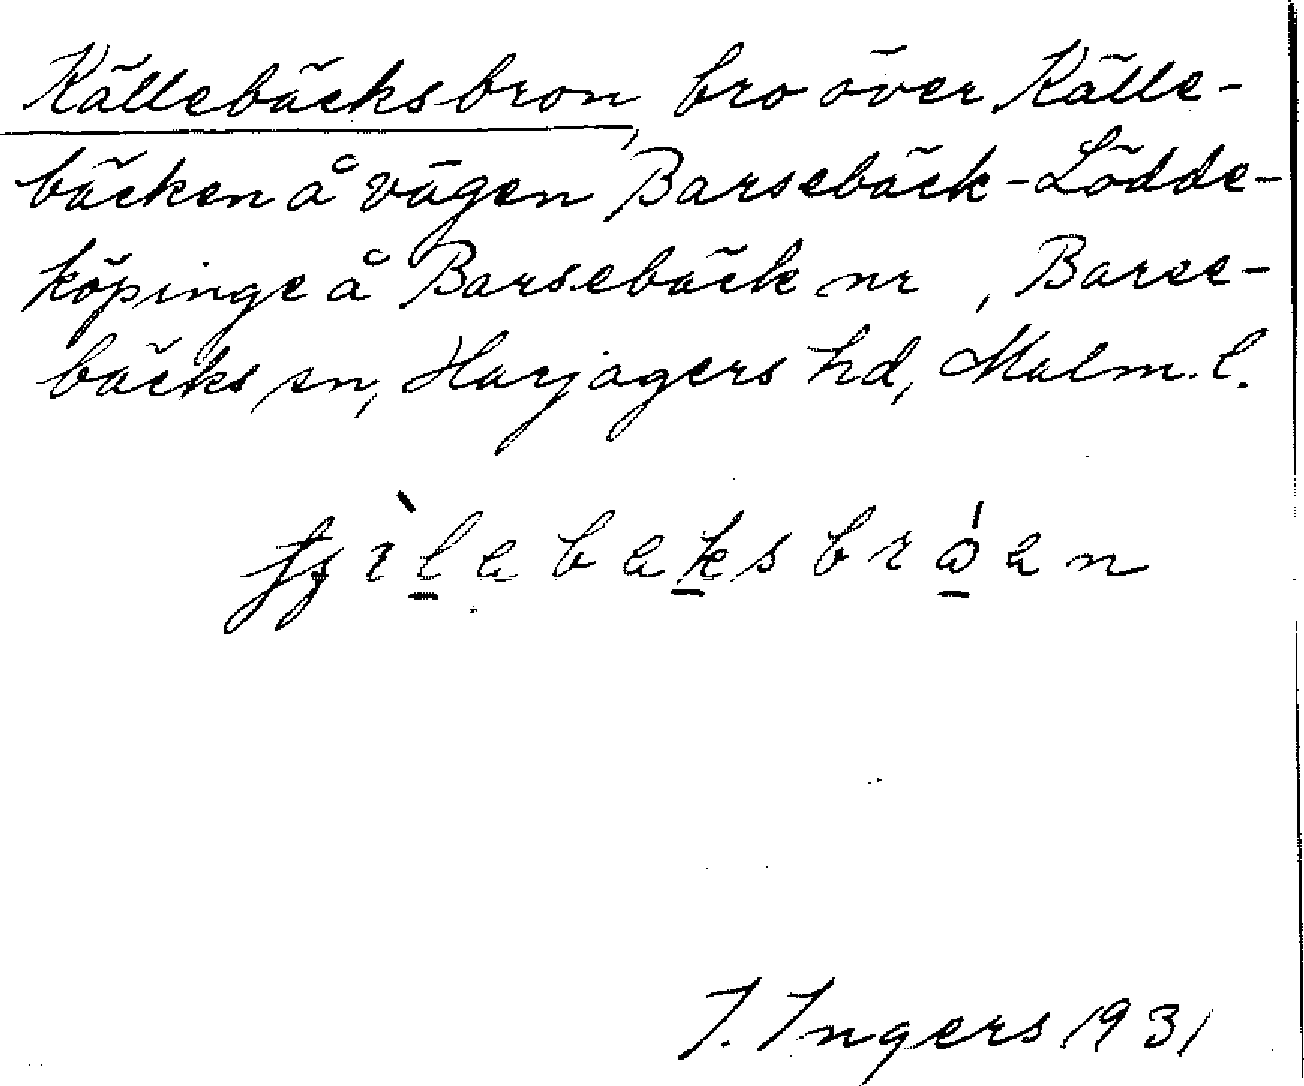 Källebäcksbron, bro över Källe-
bäcken å vägen Barsebäck-Lödde-
köpinge å Barsebäck nr , Barse-
bäcks sn, Harjagers hd, Malm. l.
I. Ingers 1931